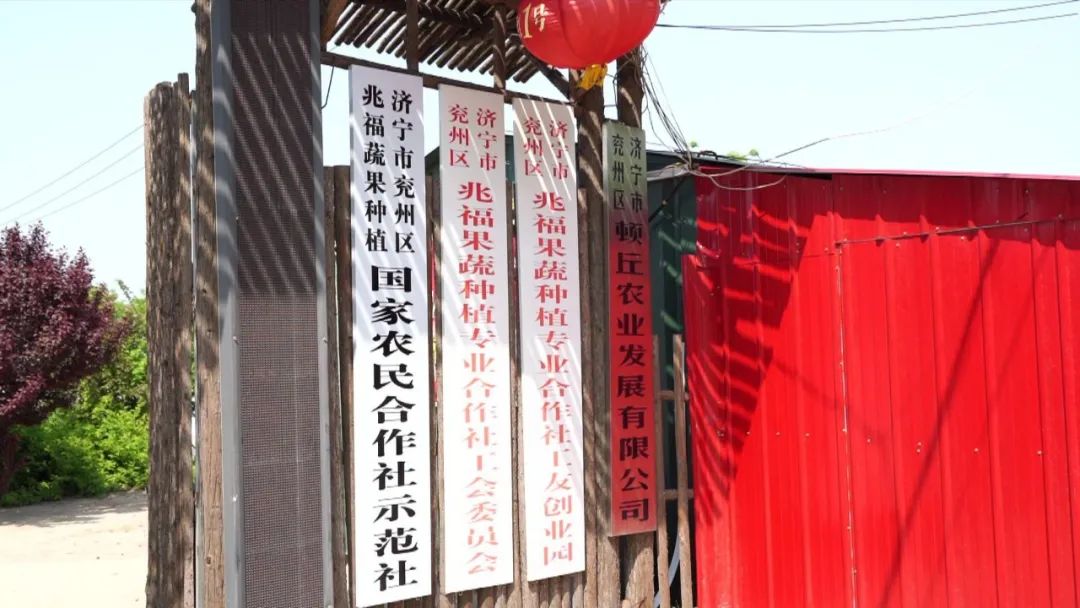 1号
济宁市兖州区
兆福蔬果种植
国家农民合作社示范社
济宁市
兖州区
兆福果蔬种植专业合作社工会委员会
济宁市
兖州区
兆福果蔬种植专业合作社工友创业园
济宁市
兖州区
顿丘农业发展有限公司